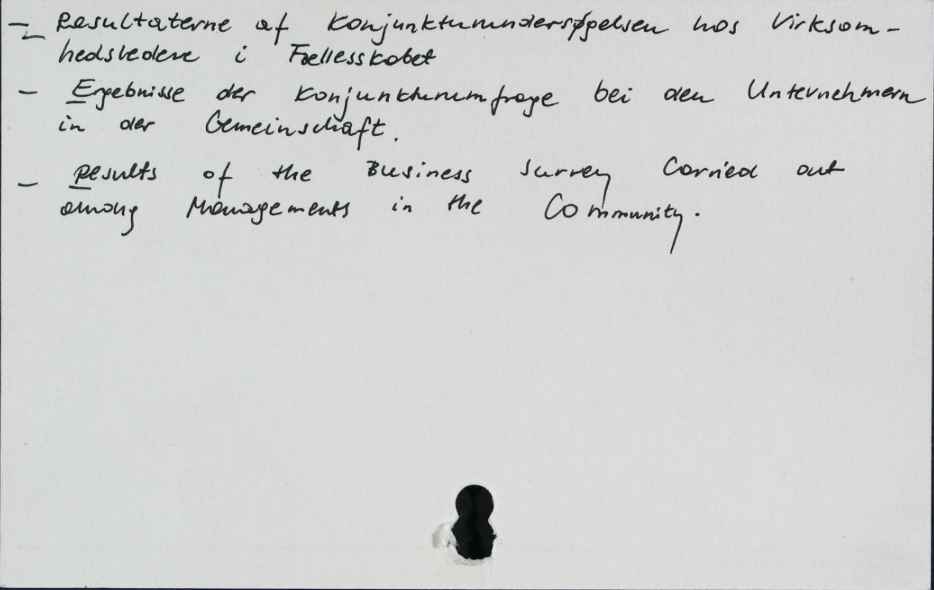 - Resultaterne af Konjunkturundersøgelsen hos Virksom-
hedsledere i Fællesskabet
- Ergebnisse der Konjunkturumfrage bei den Unternehmern
in der Gemeinschaft.
- Results of the Business Survey Carried out
among Managements in the Community.